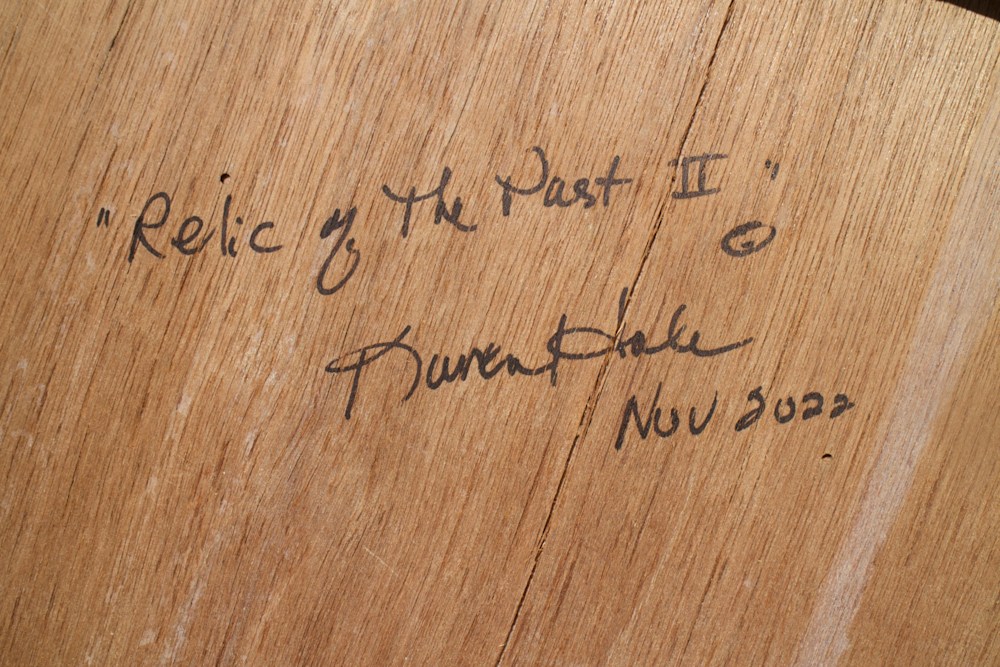 "Relic of The Past II"
©
Karen Hale
Nov 2022